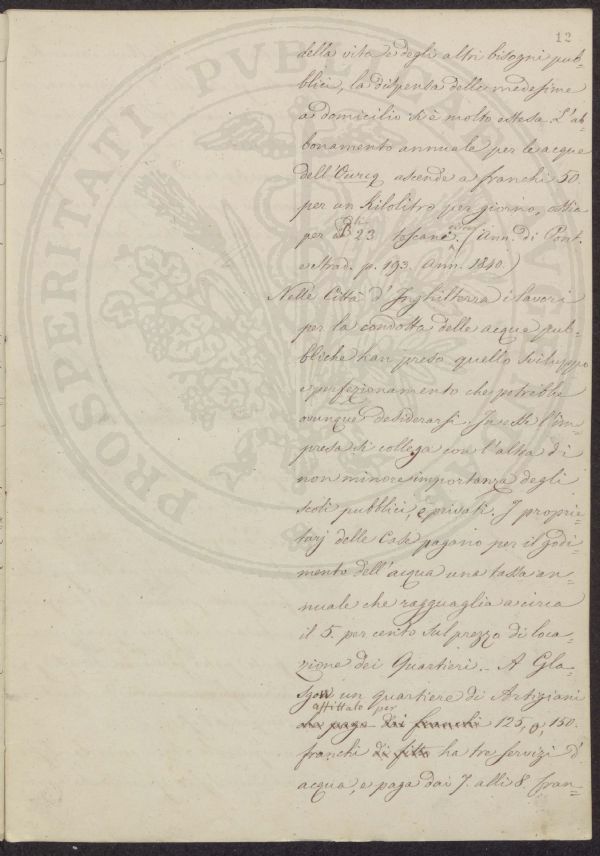 12
della vita e degli altri bisogni pub=
blici, la dispensa delle medesime
a domicilio si è molto estesa. L'ab=
bonamento annuale per le acque
dell'Ourcq ascende a franchi 50.
per un Kilolitro per giorno, ossia
per 23 toscane. (Ann. di Pont.
e Strad. p. 193. Ann. 1840.)
Nelle Città d'Inghilterra i lavori
per la condotta delle acque pub=
bliche han preso quello sviluppo
e perfezionamento che potrebbe
ovunque desiderarsi. In esse l'im=
presa si collega con l'altra di
non minore importanza degli
scoli pubblici, e privati. I proprie=
tarj delle Case pagano per il godi=
mento dell'acqua una tassa an=
nuale che ragguaglia a circa
il 5. per cento sul prezzo di loca=
zione dei Quartieri. _ A Gla=
sgow un quartiere di Artigiani
affittato per
che paga dai franchi 125, o, 150.
franchi di fitto ha tre servizi d'
acqua, e paga dai 7. alli 8. fran=
PROSPERITATI PVBLICAE